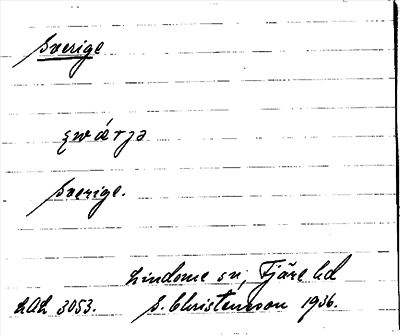 Sverige
swárjə
Sverige.
Lindome sn, Fjäre hd
LAL 3053.
S. Christensson 1936.